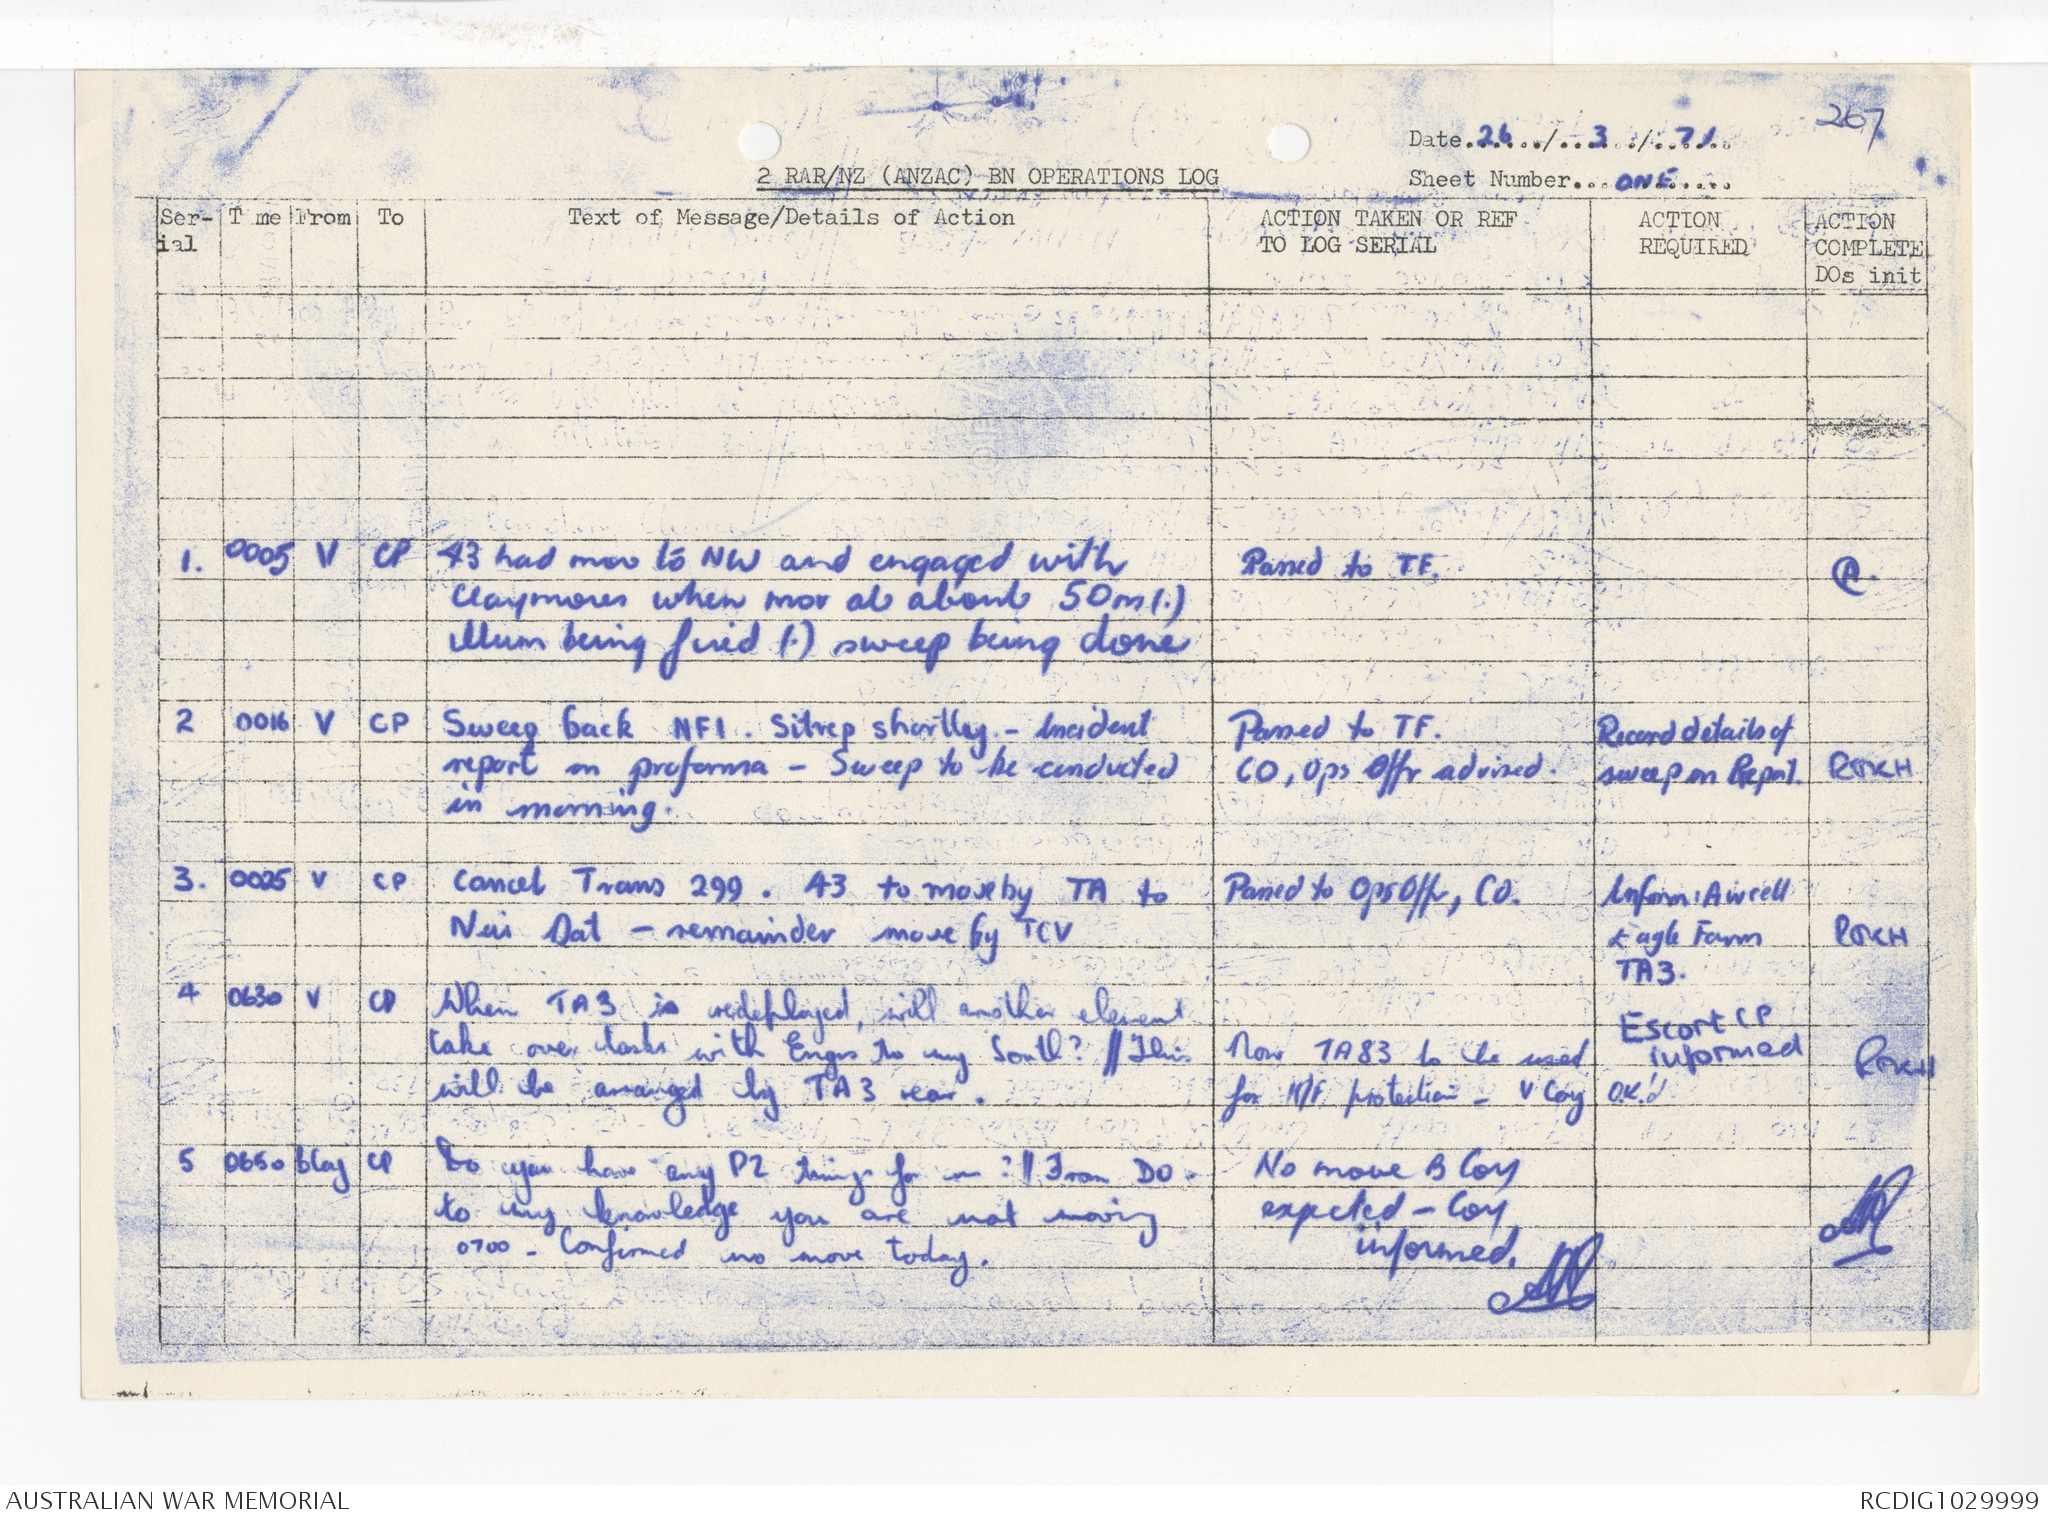 267
Date 26/3/71
2 RAR/NZ (ANZAC) BN OPERATIONS LOG
Sheet Number ONE
Ser-ial Time From To Text of Message/Details of Action ACTION TAKEN OR REF TO LOG SERIAL ACTION REQUIRED ACTION COMPLETE DOs init
1. 0005 V CP 43 had mov to NW and engaged with Passed to TF.
Claymores when mov at about 50m (.)
illum being fired (.) sweep being done
2 0016 V CP Sweep back NFI. Sitrep shortly - Incident Passed to TF. Record details of
report on proforma - Sweep to be conducted CO, Ops Offr advised. sweep on Report. ROKH
in morning.
3. 0025 V CP Cancel Trans 299. 43 to move by TA to Passed to Ops Offr, CO. Inform: Aircell
Nui Dat - remainder move by TCV Eagle Farm ROKH
TA3.
4 0630 V CP When TA3 is redeployed, will another element Escort CP
take over tasks with Engrs to my South? // This Now TA83 to be used informed ROKH
will be arranged by TA3 rear. for protection - V Coy O.K.'d
5 0650 B Coy CP Do you have any P2 things for me? // From DO - No move B Coy
to my knowledge you are not moving expected - Coy
0700 - Confirmed no move today. informed.
AUSTRALIAN WAR MEMORIAL
RCDIG1029999